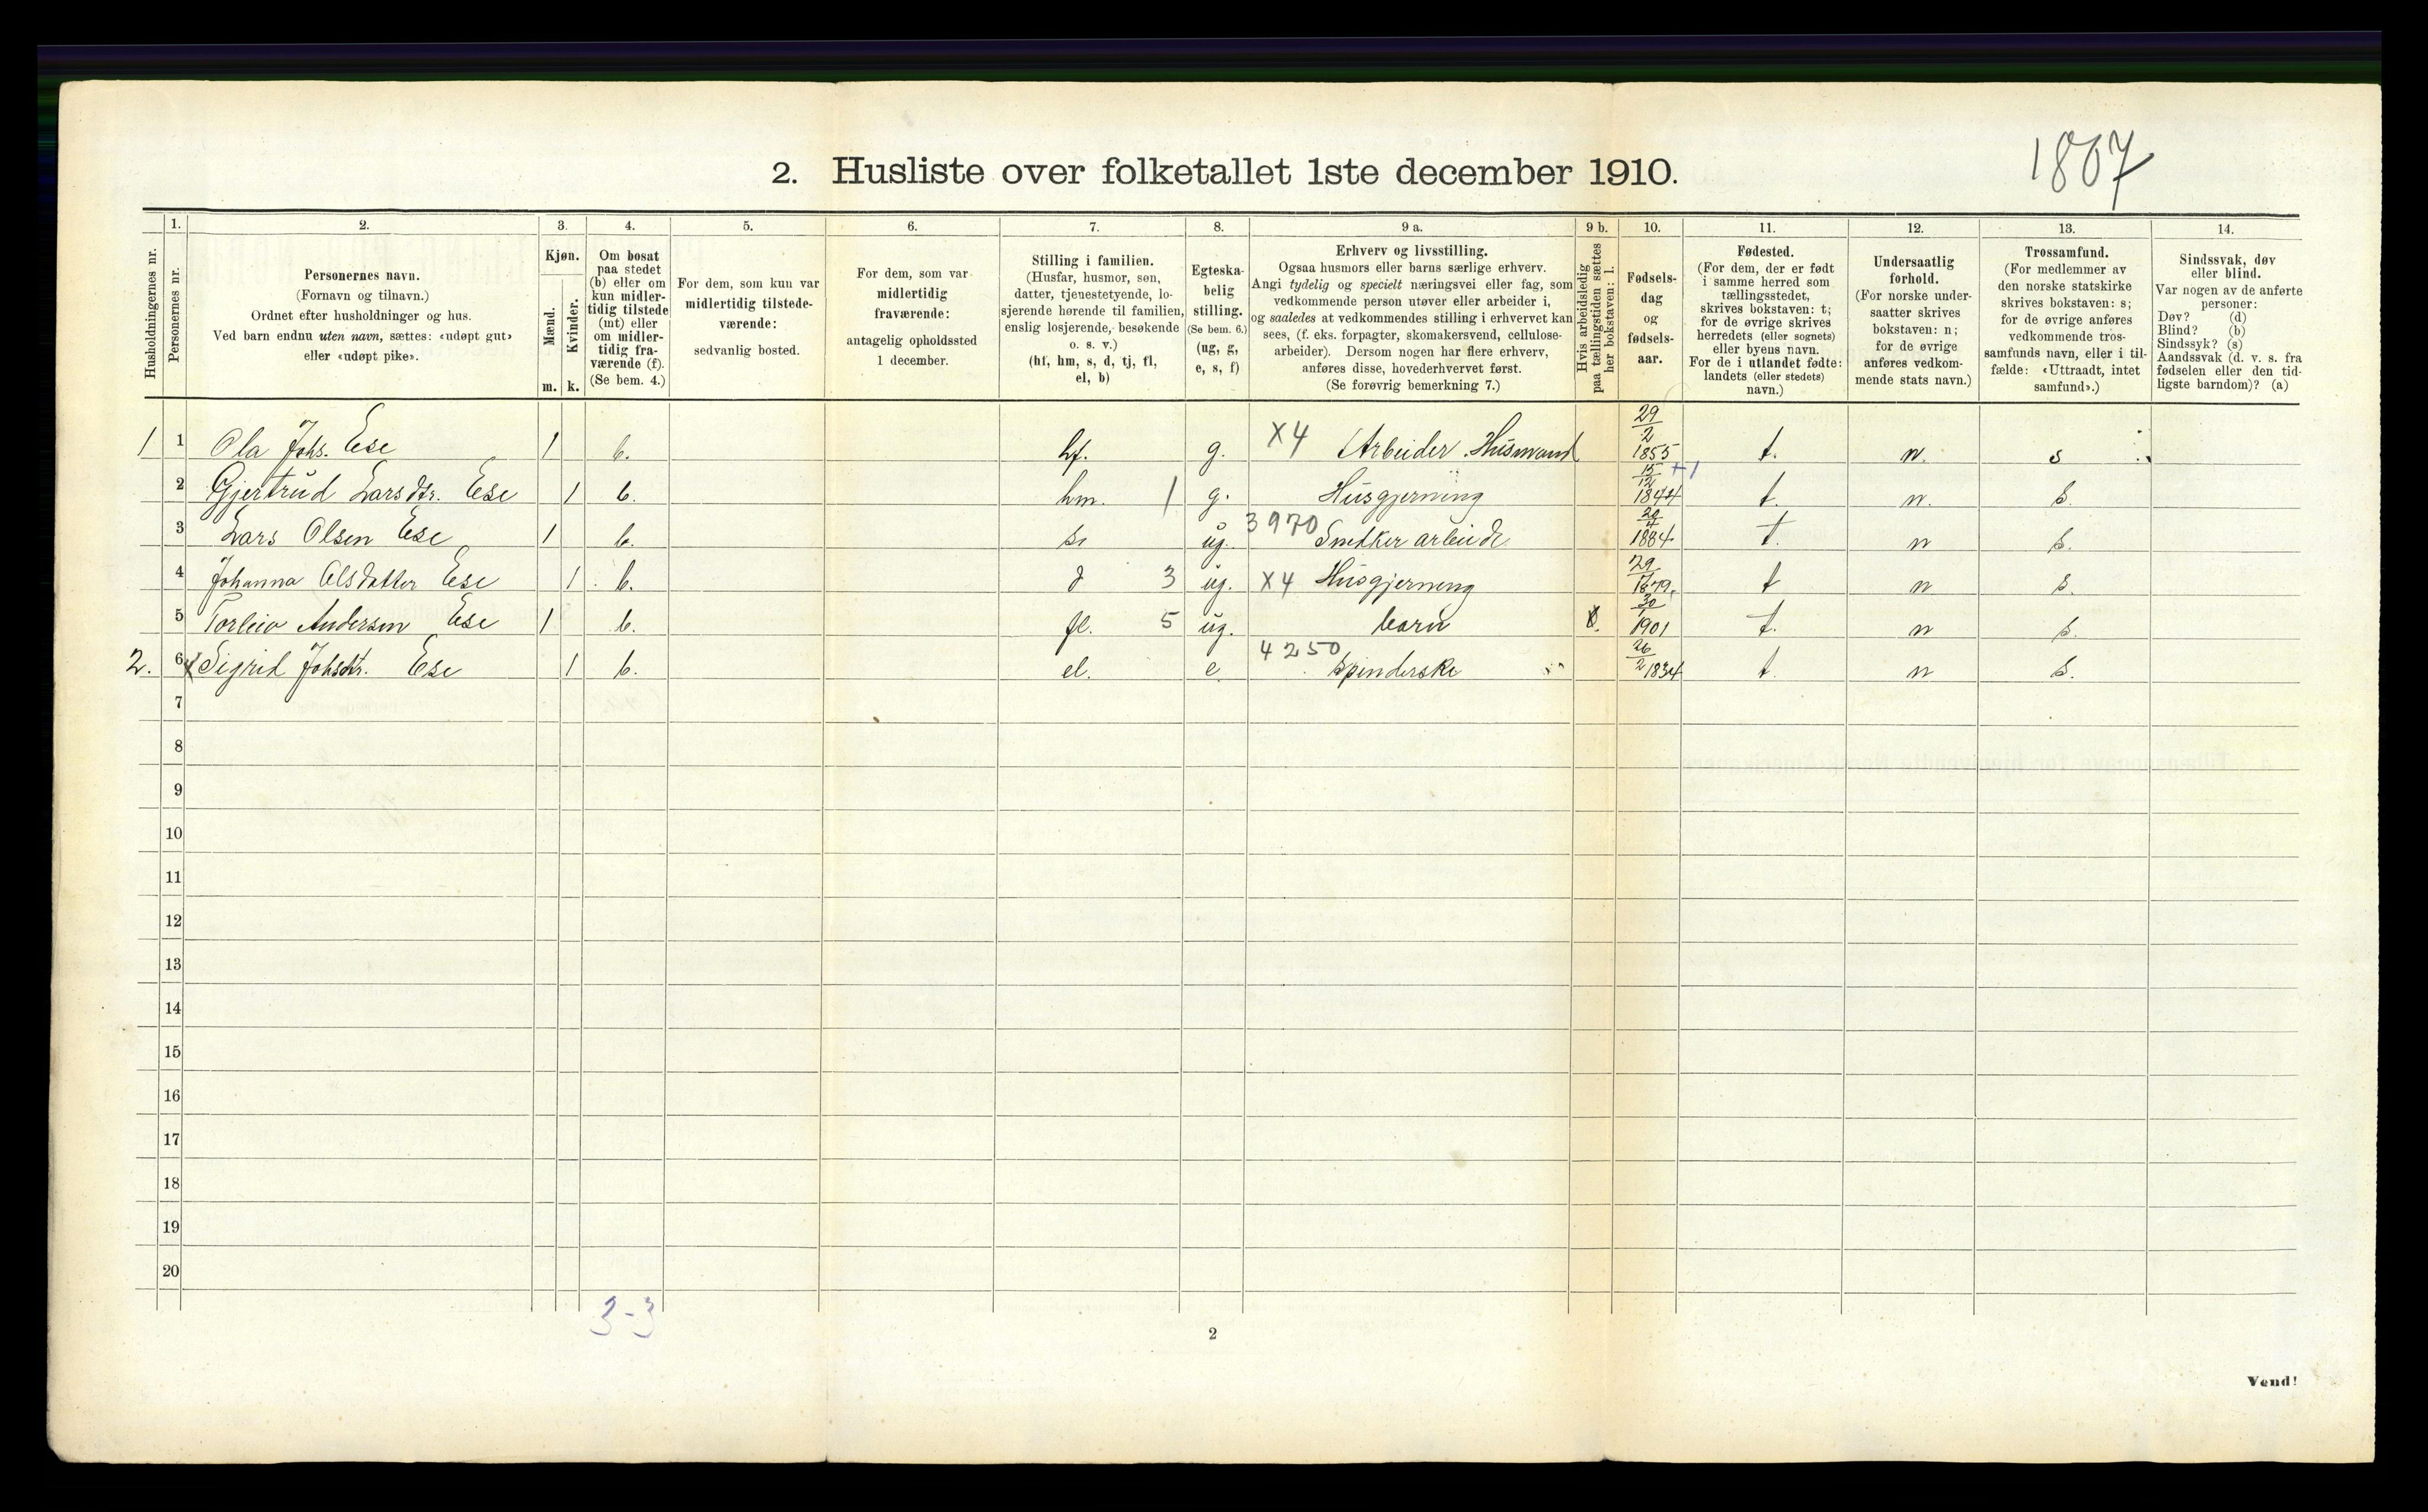 1807
2. Husliste over folketallet 1ste december 1910.
Husholdningernes nr.
1.
Personernes nr.
2.
Personernes navn.
(Fornavn og tilnavn.)
Ordnet efter husholdninger og hus.
Ved barn endnu uten navn, sættes: «udøpt gut»
eller «udøpt pike».
3.
Kjøn.
Mænd.
Kvinder.
m. k.
4.
Om bosat
paa stedet
(b) eller om
kun midler-
tidig tilstede
(mt) eller
om midler-
tidig fra-
værende (f).
(Se bem. 4.)
5.
For dem, som kun var
midlertidig tilstede-
værende:
sedvanlig bosted.
6.
For dem, som var
midlertidig
fraværende:
antagelig opholdssted
1 december.
7.
Stilling i familien.
(Husfar, husmor, søn,
datter, tjenestetyende, lo-
sjerende hørende til familien,
enslig losjerende, besøkende
o. s. v.)
(hf, hm, s, d, tj, fl,
el, b)
8.
Egteska-
belig
stilling.
(Se bem. 6.)
(ug, g,
e, s, f)
9 a.
Erhverv og livsstilling.
Ogsaa husmors eller barns særlige erhverv.
Angi tydelig og specielt næringsvei eller fag, som
vedkommende person utøver eller arbeider i,
og saaledes at vedkommendes stilling i erhvervet kan
sees, (f. eks. forpagter, skomakersvend, cellulose-
arbeider). Dersom nogen har flere erhverv,
anføres disse, hovederhvervet først.
(Se forøvrig bemerkning 7.)
9 b.
Hvis arbeidsledig
paa tællingstiden sættes
her bokstaven: l.
10.
Fødsels-
dag
og
fødsels-
aar.
11.
Fødested.
(For dem, der er født
i samme herred som
tællingsstedet,
skrives bokstaven: t;
for de øvrige skrives
herredets (eller sognets)
eller byens navn.
For de i utlandet fødte:
landets (eller stedets)
navn.)
12.
Undersaatlig
forhold.
(For norske under-
saatter skrives
bokstaven: n;
for de øvrige
anføres vedkom-
mende stats navn.)
13.
Trossamfund.
(For medlemmer av
den norske statskirke
skrives bokstaven: s;
for de øvrige anføres
vedkommende tros-
samfunds navn, eller i til-
fælde: «Uttraadt, intet
samfund».)
14.
Sindssvak, døv
eller blind.
Var nogen av de anførte
personer:
Døv? (d)
Blind? (b)
Sindssyk? (s)
Aandssvak (d. v. s. fra
fødselen eller den tid-
ligste barndom)? (a)
1 1 Ola Johs. Ese 1 b. hf. g. X4 Arbeider. Husmand 29/2 1855 t. n. s
2 Gjertrud Larsdtr. Ese 1 b. hm. 1 g. Husgjerning 15/12 1844 +1 t. n. s.
3 Lars Olsen Ese 1 b. s. ug. 3970 Snedker arbeide 1884 t. n s.
4 Johanna Olsdatter Ese 1 b. d 3 ug. X4 Husgjerning 1879. t n s.
5 Torleiv Andersen Ese 1 b. fl. 5 ug. barn 1901 t. n s.
2. 6 Sigrid Johsdtr. Ese 1 b. el. e 4250 Spinderske 26/2 1834 t. n s.
7
8
9
10
11
12
13
14
15
16
17
18
19
20
3-3
2
Vend!